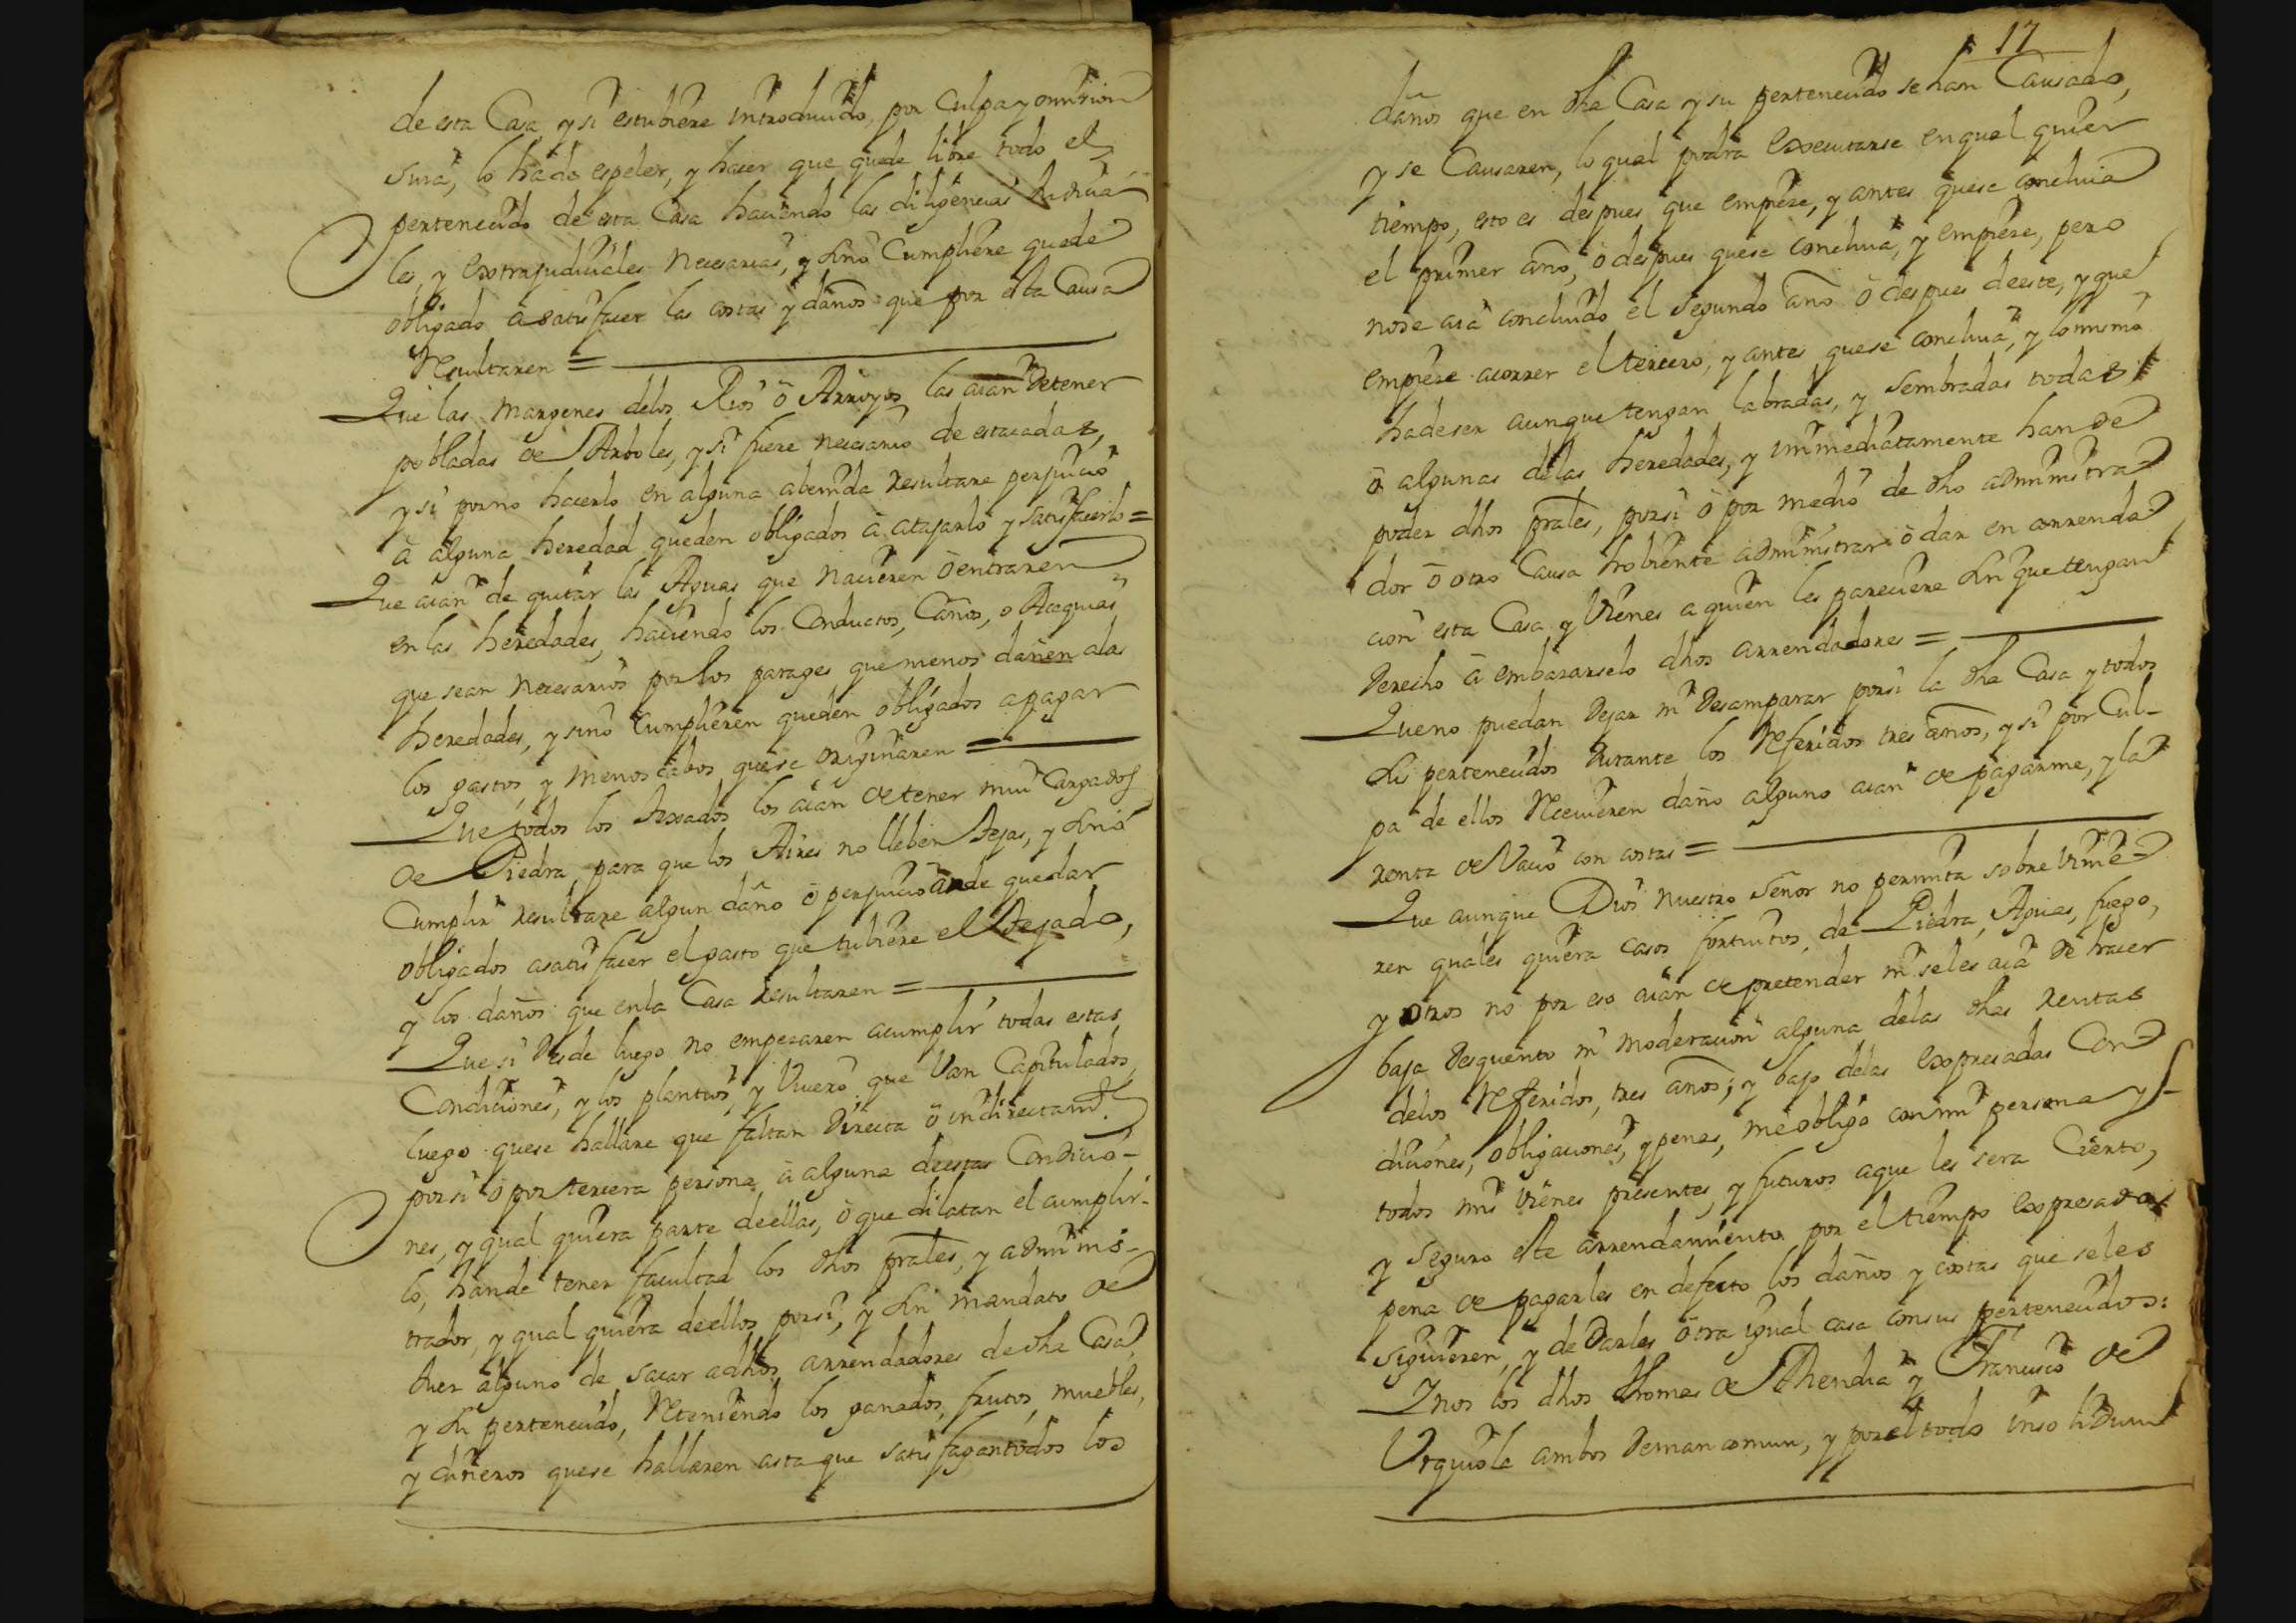 de esta Casa, y si estubiere introducido, por culpa y omision
suia, lo ha de espeler, y hacer que quede libre todo el
pertenecido de esta Casa haciendo las diligencias Judicia
les, y extrajudiciales necesarias, y sino Cumpliere quede
obligado à satisfacer las costas y daños que por esta Causa
Resultaren =
Que las margenes delos Rios ò Arroyos las aian de tener
pobladas de Arboles, y si fuere necesario de estacadas,
y si porno hacerlo en alguna abenida resultare perjuicio
à alguna heredad queden obligados à atajarlo y satisfacerlo =
Que aian de quitar las Aguas que nacieren ò entraren
en las heredades, haciendo los Conductos, Caños, o Acequias
que sean necesarios por los parages que menos dañen alas
heredades, y sino Cumplieren queden obligados apagar
los gastos, y menoscabos quese originaren =
Que todos los texados los aian de tener mui Cargados
de Piedra, para que los Aires no lleben tejas, y sino
Cumplir resultare algun daño ò perjuicio an de quedar
obligados asatisfacer el gasto que tubiere el Tejado,
y los daños que enla Casa resultaren =
Que si desde luego no empezaren acumplir todas estas
Condiciones, y los plantios, y Viveros que Van Capitulados,
luego quese hallare que faltan Directa ò indirectamte.
porsi ò por tercera persona à alguna deestas Condicio-
nes, y qual quiera parte deellas, ò que dilatan el cumplir-
lo, hande tener facultad los dhos prales, y adminis-
trador, y qual quiera deellos porsi, y sin mandato de
Juez alguno de sacar adhos arrendadores de dha Casa,
y su pertenecido, Reteniendo los ganados, frutos, muebles,
y dineros quese hallaren asta que satisfagan todos los
17
daños que en dha Casa y su pertenecido se han Causado,
y se Causaren, lo qual podra executarse en qual quier
tiempo, esto es despues que empieze, y antes quese concluia
el primer año, ò despues quese concluia, y empieze, pero
nose aia concluido el segundo año ò despues deeste, y que
empieze acorrer el tercero, y antes quese concluia, y lo mismo
hadeser aunque tengan labradas, y sembradas todas
ò algunas delas heredades, y immediatamente han de
poder dhos prales, porsi ò por medio de dho administra
dor ò otro Causa hobiente administrar ò dar en arrenda
cion esta Casa y Vienes a quien les pareciere sin que tengan
Derecho à embarazarselo dhos arrendadores =
Queno puedan Dejar ni Desamparar porsi la dha Casa y todos
sus pertenecidos Durante los Referidos tres años, y si por Cul-
pa de ellos Recivieren daño alguno aian de pagarme, y la
renta de Vacio con costas =
Que aunque Dios nuestro Señor no permita sobre vinie
ren quales quiera casos fortuitos, de Piedra, Aguas, fuego,
y otros no por eso aian de pretender ni seles aia de hacer
baja Desquento ni moderacion alguna delas dhas rentas
delos Referidos, tres años; y bajo delas expresadas Con
diciones, obligaciones, y penas, me obligo con mi persona y
todos mis vienes presentes, y futuros aque les sera Cierto,
y Seguro este arrendamiento por el tiempo expresado
pena de pagarles en defecto los daños y costas que seles
siguieren, y de Darles otra igual casa consus pertenecidos:
Y nos los dhos Thomas de Athendia y Francisco de
Urquiola ambos Deman comun, y porel todo insolidum